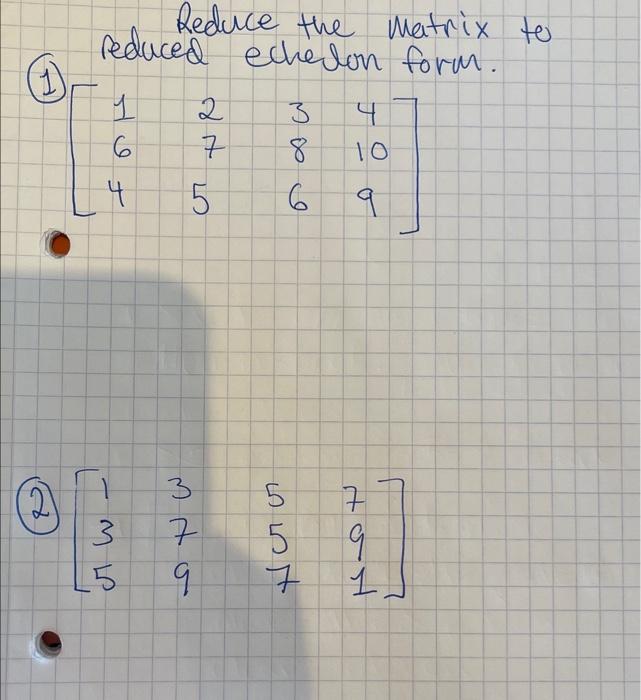 Reduce the matrix to
reduced echelon form.
1
1 2 3 4
6 7 8 10
4 5 6 9
2
1 3 5 7
3 7 5 9
5 9 7 1